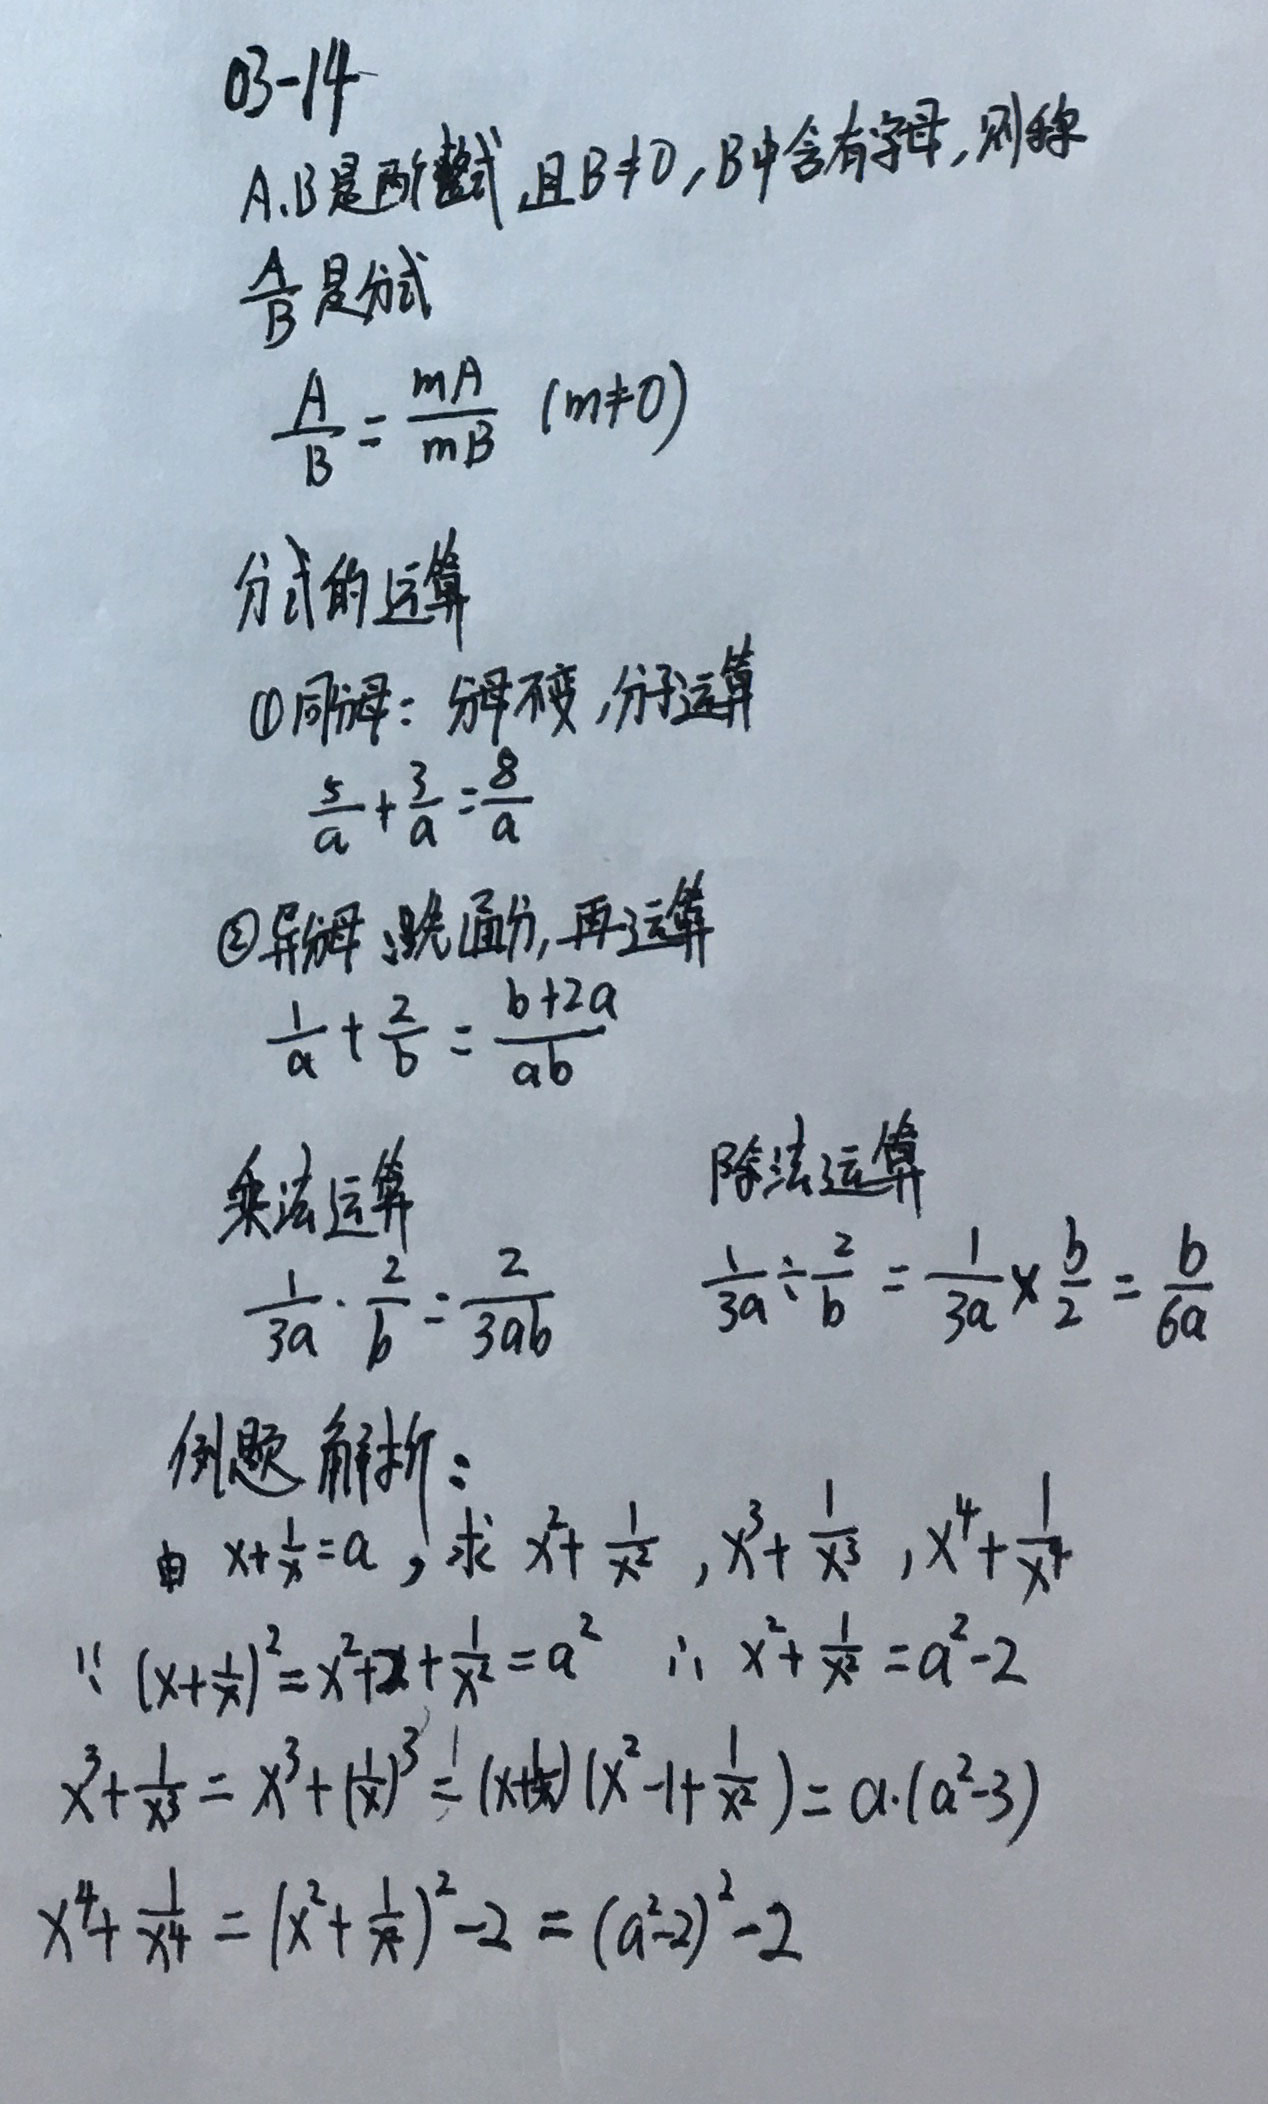 03-14
A、B是两个整式,且B≠0,B中含有字母,则称
A/B是分式
A/B = mA/mB (m≠0)
分式的运算
①同分母:分母不变,分子运算
5/a + 3/a = 8/a
②异分母:先通分,再运算
1/a + 2/b = (b+2a)/ab
乘法运算
1/3a · 2/b = 2/3ab
除法运算
1/3a ÷ 2/b = 1/3a × b/2 = b/6a
例题解析:
由 x+1/x=a,求 x²+1/x²,x³+1/x³,x⁴+1/x⁴
∵ (x+1/x)²=x²+2+1/x²=a² ∴ x²+1/x²=a²-2
x³+1/x³=x³+(1/x)³=(x+1/x)(x²-1+1/x²)=a·(a²-3)
x⁴+1/x⁴=(x²+1/x²)²-2=(a²-2)²-2